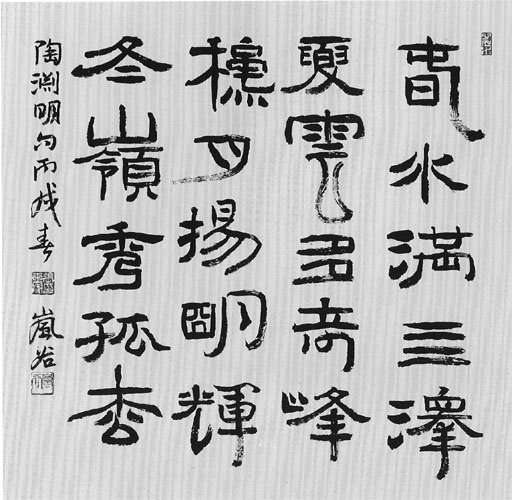 春水滿三澤
夏雲多奇峰
秋月揚明輝
冬嶺秀孤枩
陶渊明句丙戌春 嵐谷